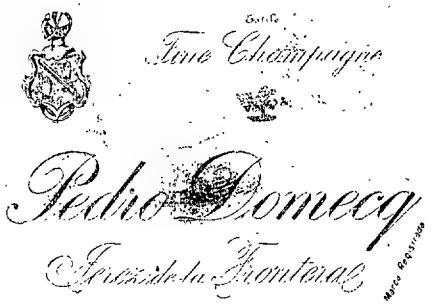 Estilo
Fine Champaigne
Pedro Domecq
Jerez de la Frontera
Marca Registrada